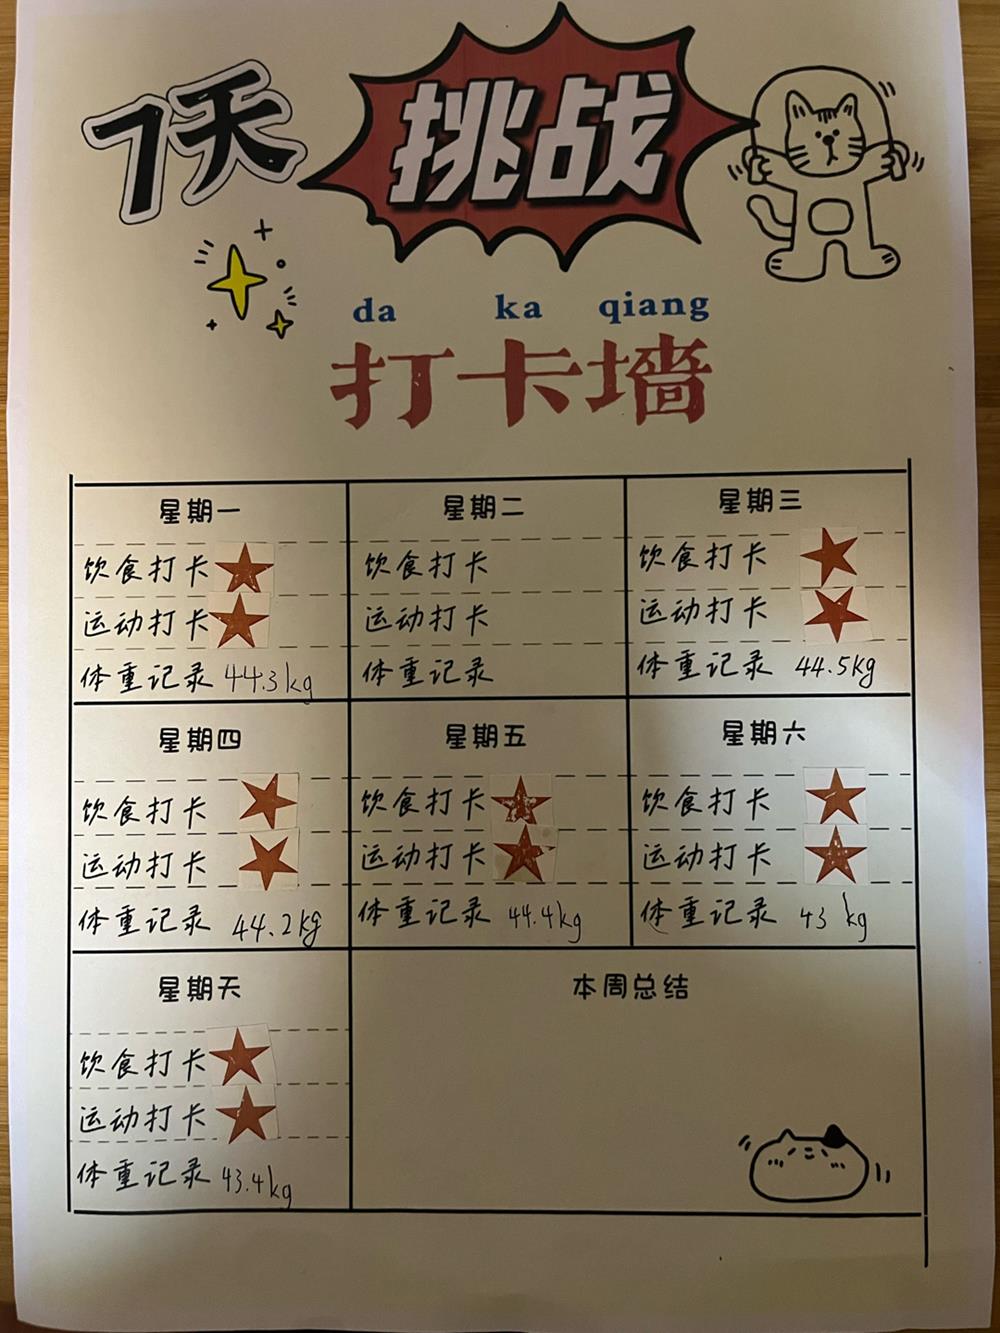 7天 挑战
da ka qiang
打卡墙
星期一
饮食打卡
运动打卡
体重记录 44.3kg
星期二
饮食打卡
运动打卡
体重记录
星期三
饮食打卡
运动打卡
体重记录 44.5kg
星期四
饮食打卡
运动打卡
体重记录 44.2kg
星期五
饮食打卡
运动打卡
体重记录 44.4kg
星期六
饮食打卡
运动打卡
体重记录 43 kg
星期天
饮食打卡
运动打卡
体重记录 43.4kg
本周总结